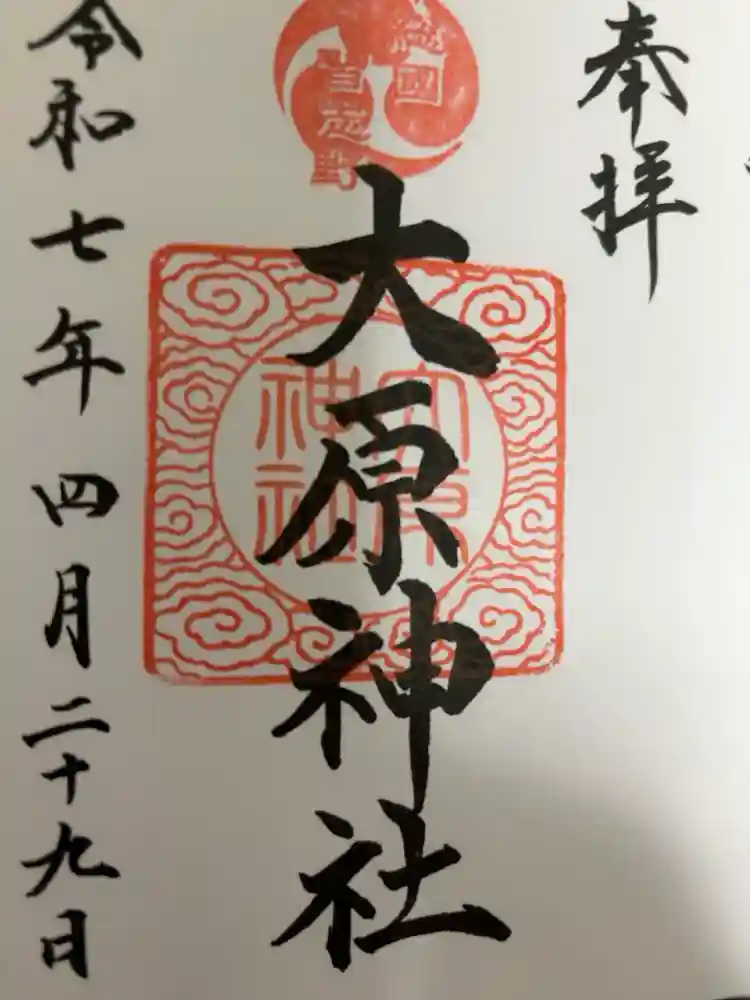 奉拝
大原神社
大原
神社
令和七年四月二十九日